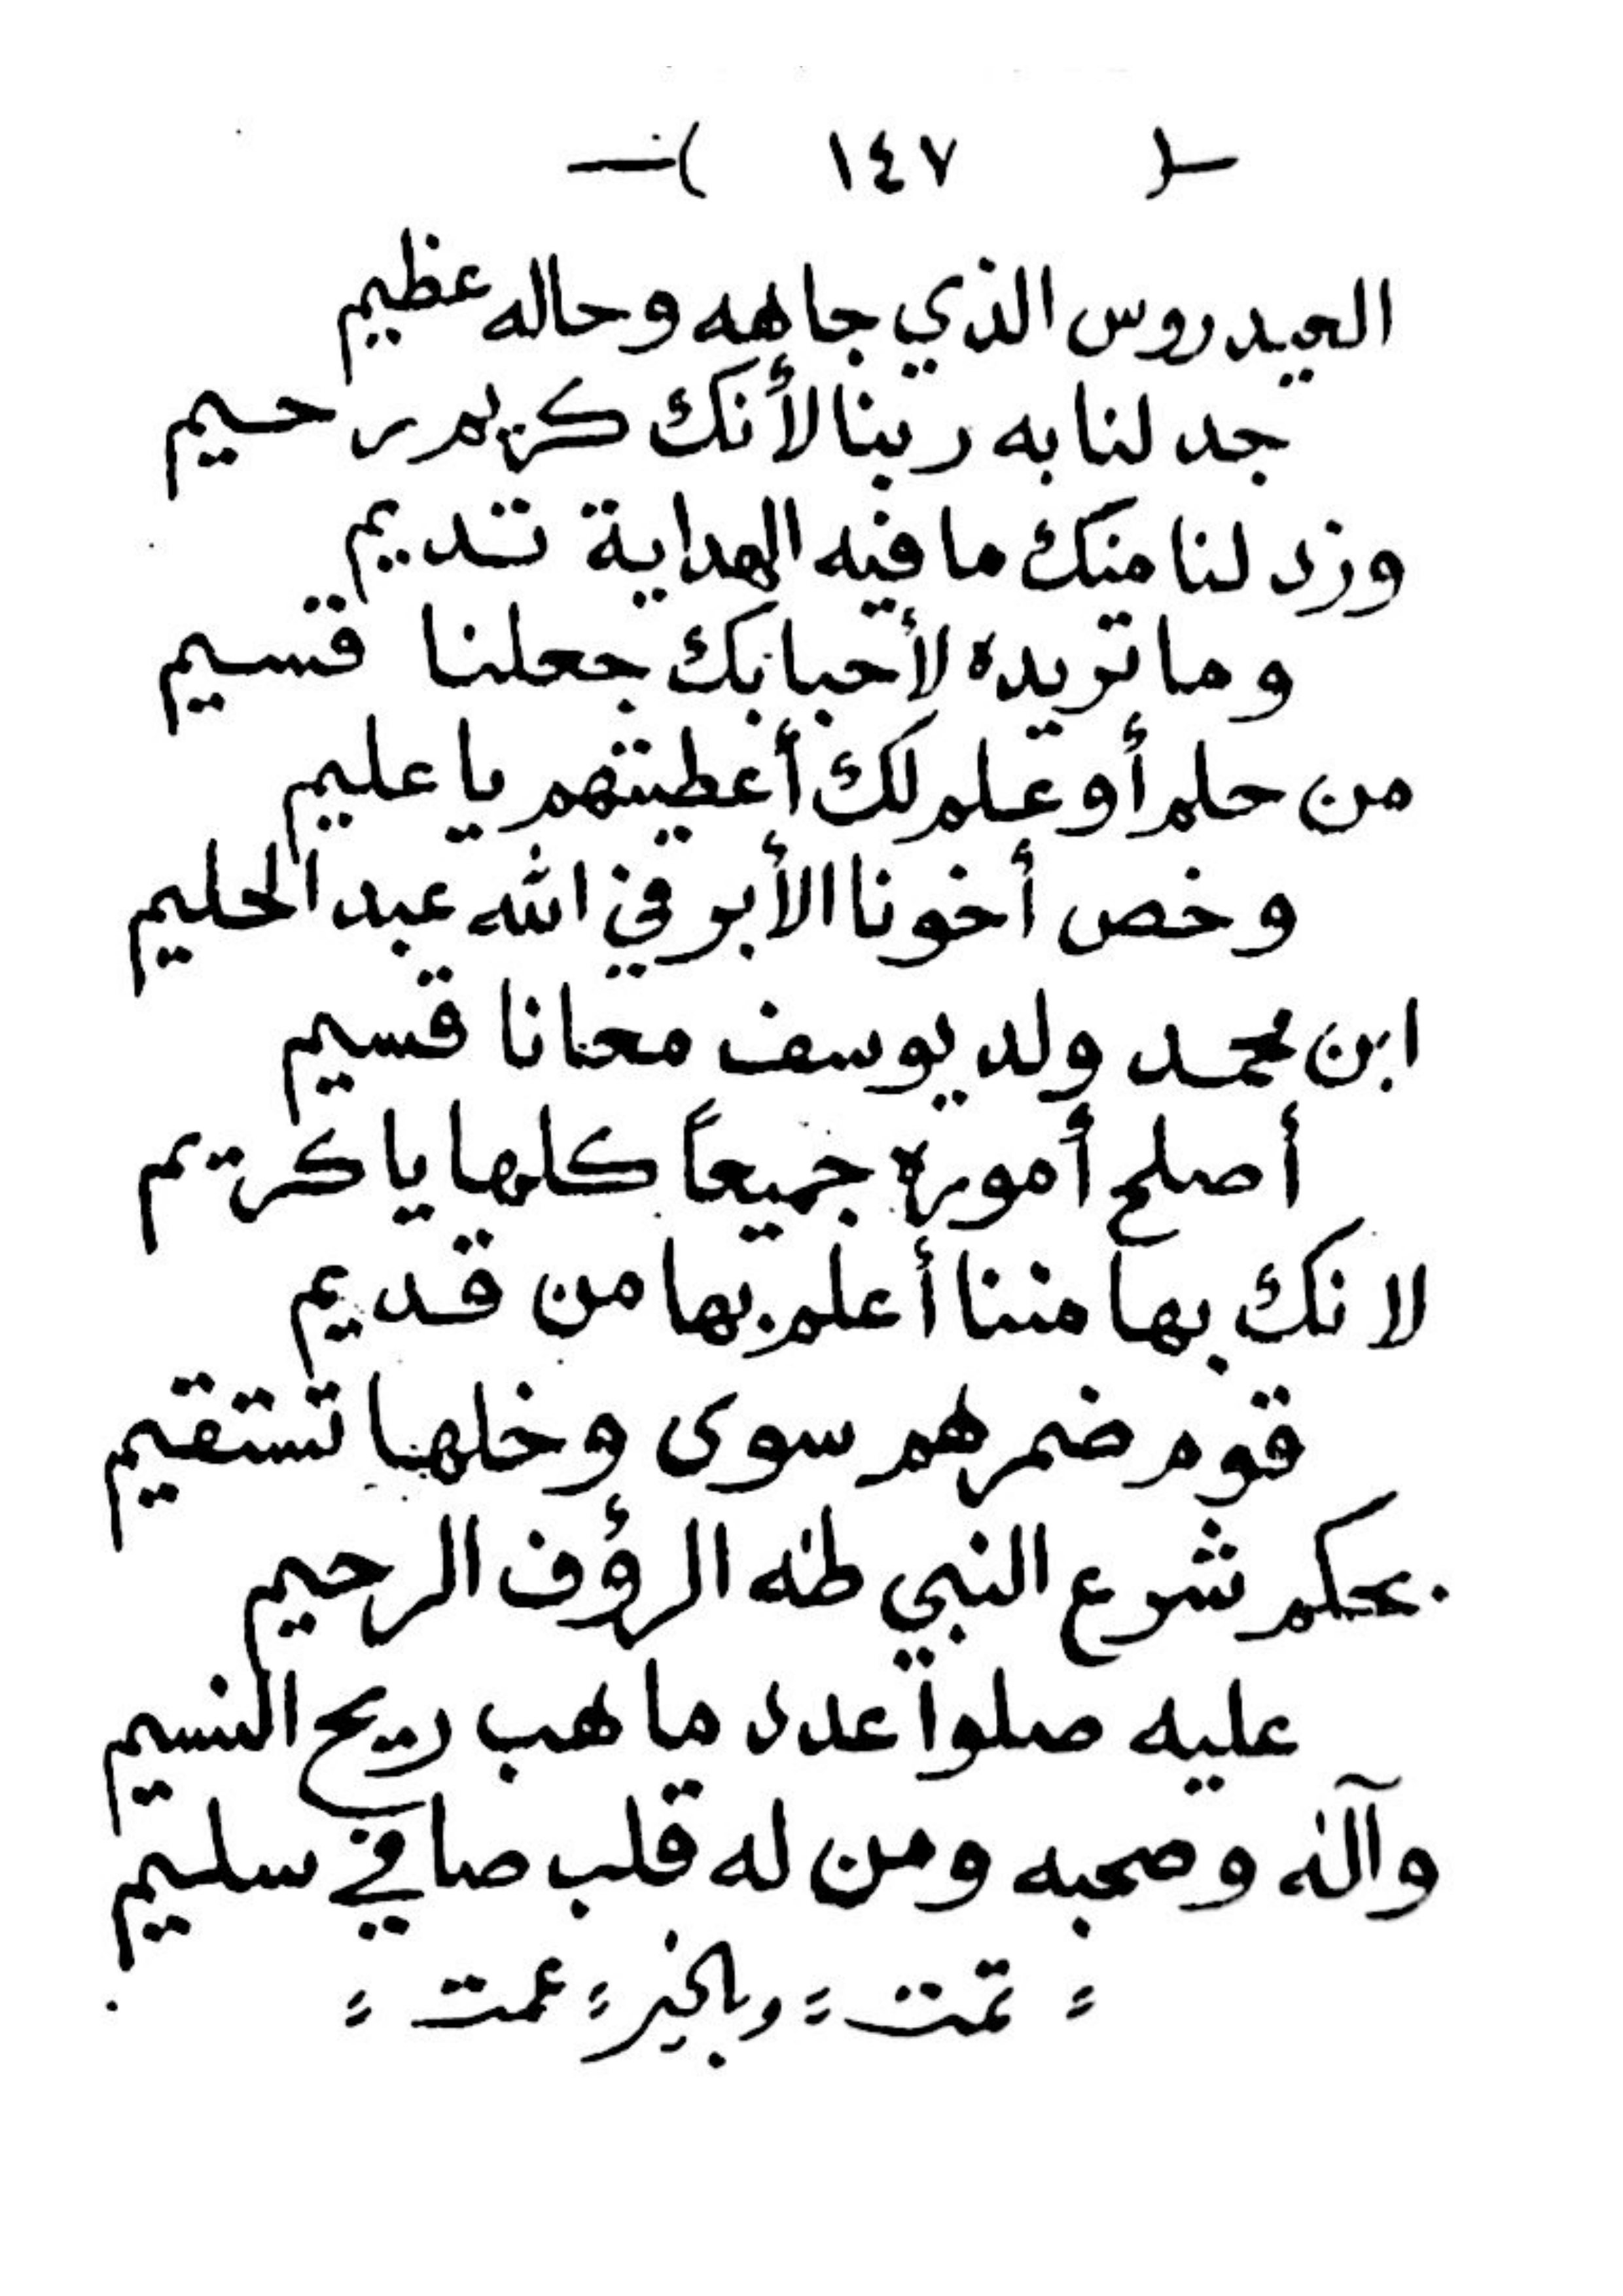 —( ١٤٧ )—
العيدروس الذي جاهه وحاله عظيم
جد لنا به ربنا لأنك كريم رحيم
وزد لنا منك ما فيه الهداية تديم
وما تريده لأحبابك جعلنا قسيم
من حلم أو علم لك أعطيتهم يا عليم
وخص أخونا الأبر في الله عبد الحليم
ابن محمد ولد يوسف معانا قسيم
أصلح أموره جميعاً كلها يا كريم
لانك بها مننا أعلم بها من قديم
قوم ضمرهم سوى وخلها تستقيم
بحكم شرع النبي طه الرؤف الرحيم
عليه صلوا عدد ما هب ريح النسيم
وآله وصحبه ومن له قلب صافي سليم
= تمت = وبالخير = عمت =